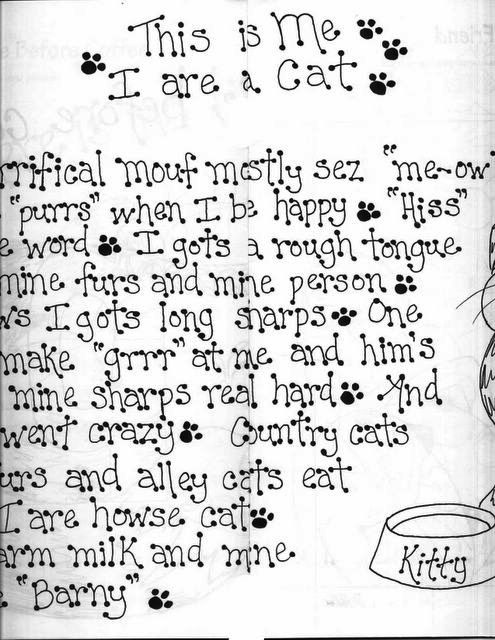 This is Me
I are a Cat
rrifical mouf mostly sez "me-ow"
"purrs" when I be happy "Hiss"
e word I gots a rough tongue
mine furs and mine person
ws I gots long sharps One
make "grrr" at me and him's
mine sharps real hard And
went crazy Country cats
urs and alley cats eat
I are howse cat
arm milk and mine
"Barny"
Kitty